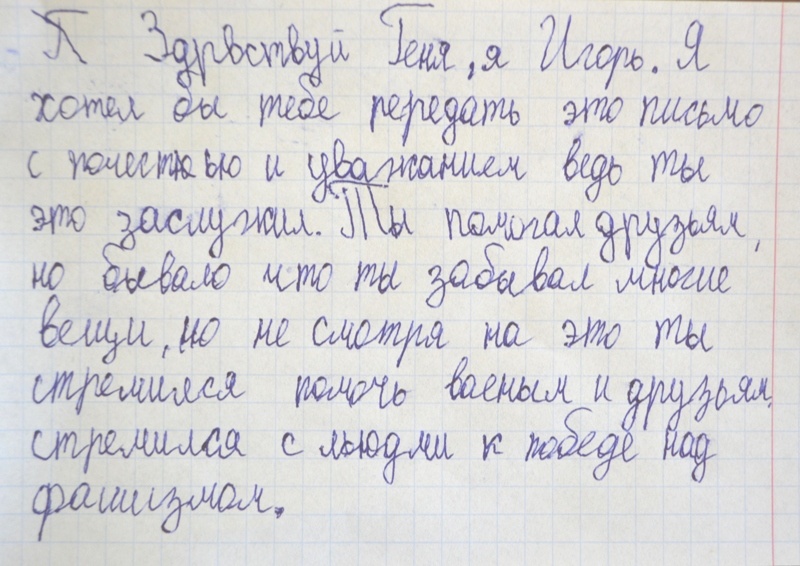 П Здрвствуй Геня, я Игорь. Я
хотел бы тебе передать это письмо
с почестью и уважанием ведь ты
это заслужил. Ты помогал друзьям,
но бывало что ты забывал многие
вещи, но не смотря на это ты
стремился помочь военым и друзьям,
стремился с людми к победе над
фашизмом.